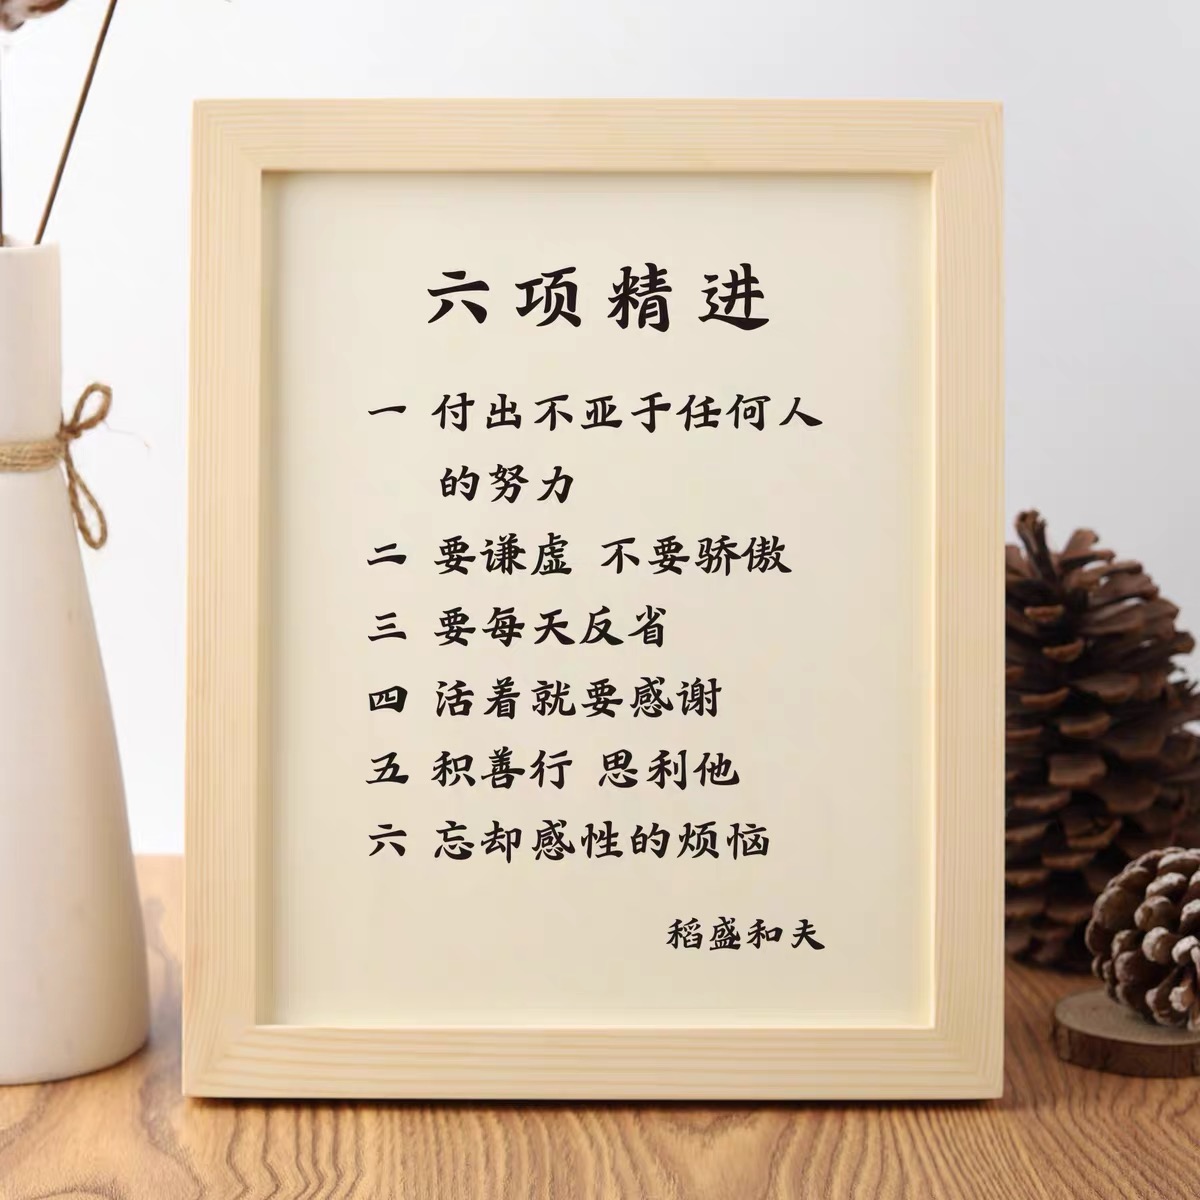 六项精进
一 付出不亚于任何人
的努力
二 要谦虚 不要骄傲
三 要每天反省
四 活着就要感谢
五 积善行 思利他
六 忘却感性的烦恼
稻盛和夫